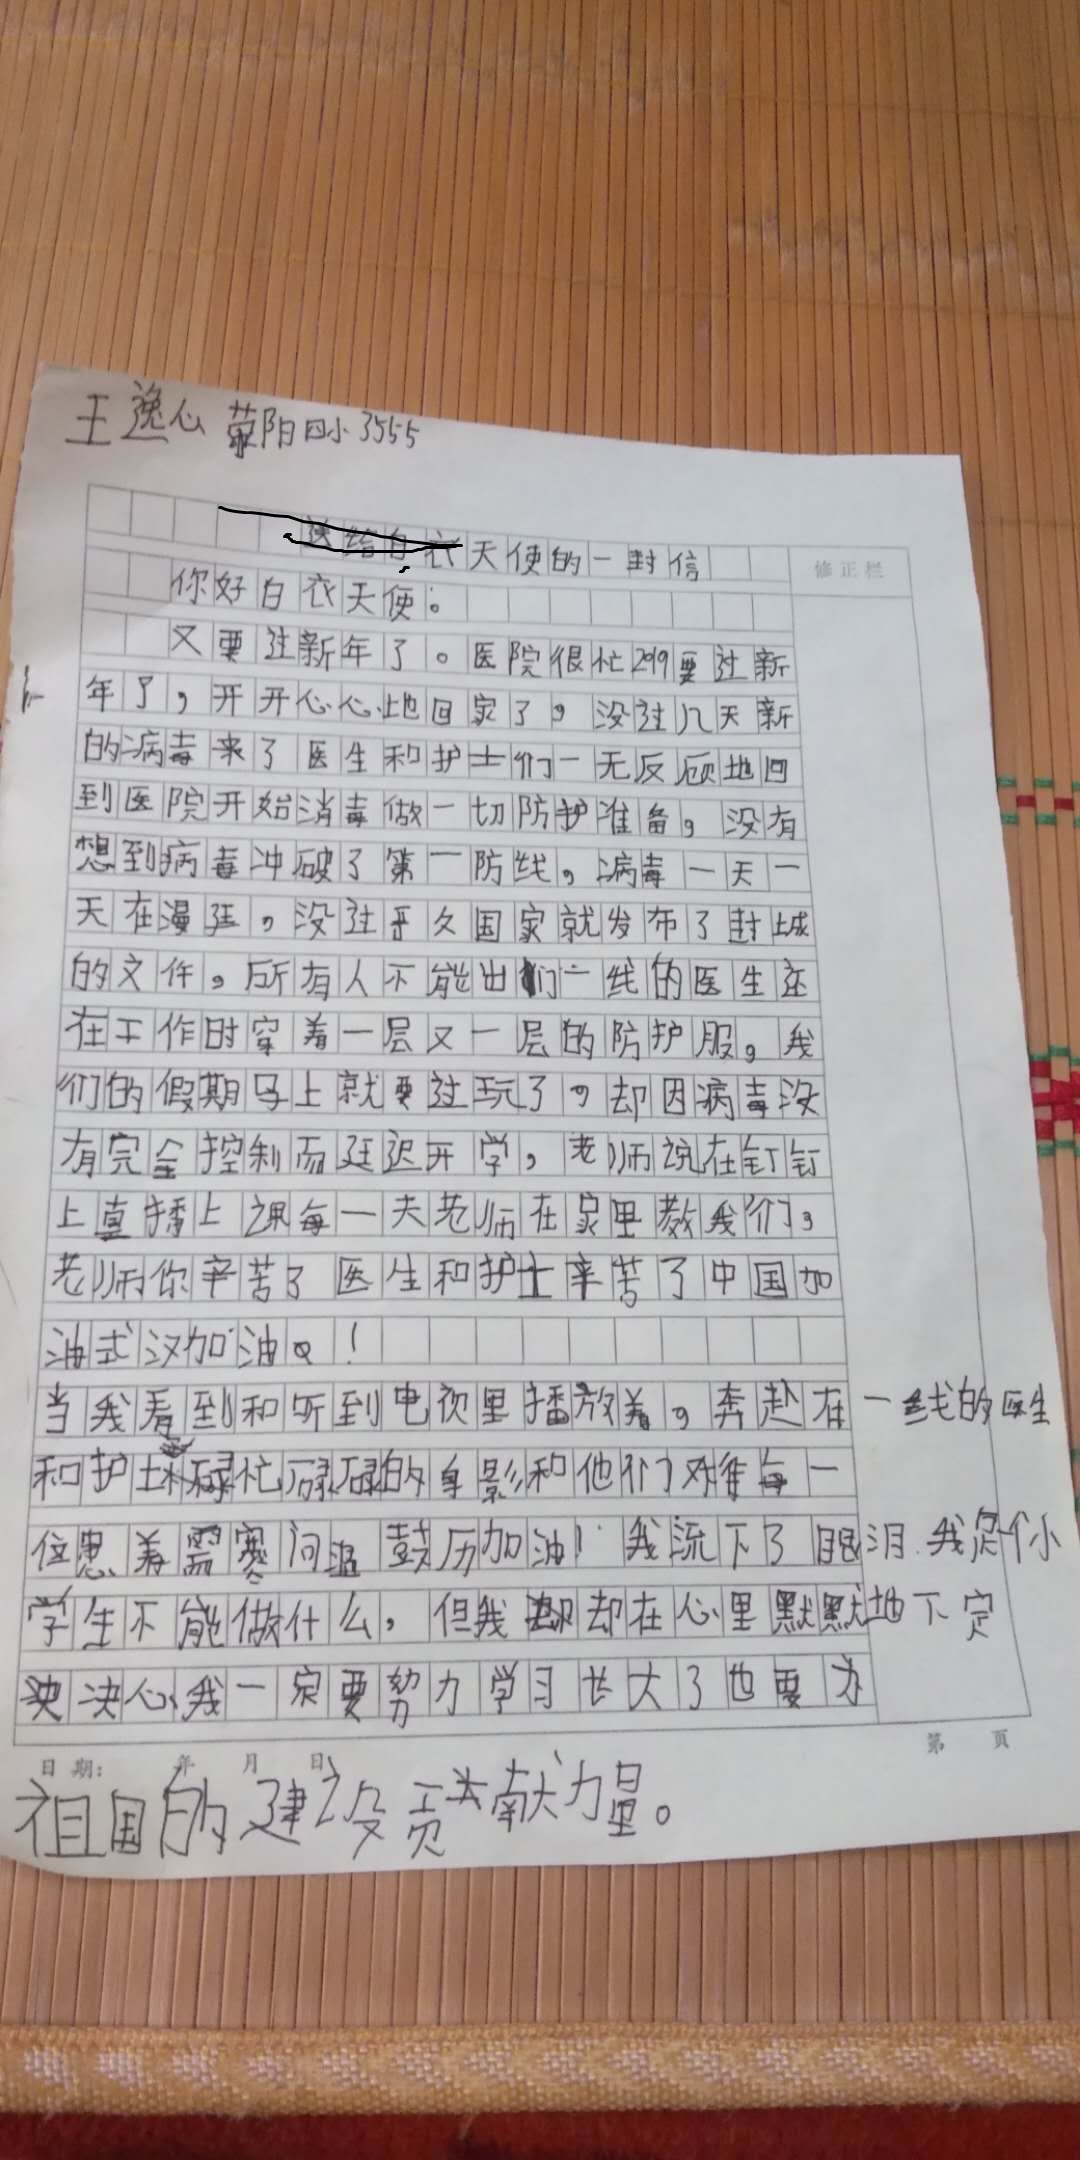 王逸心 荥阳四小 3555
送给白衣天使的一封信
修正栏
你好白衣天使。
又要过新年了。医院很忙2019要过新
年了，开开心心地回家了。没过几天新
的病毒来了医生和护士们一无反顾地回
到医院开始消毒做一切防护准备，没有
想到病毒冲破了第一防线，病毒一天一
天在漫延，没过久国家就发布了封城
的文件，所有人不能出们一线的医生还
在工作时穿着一层又一层的防护服。我
们的假期马上就要过玩了。却因病毒没
有完全控制而廷迟开学，老师说在钉钉
上直播上课每一天老师在家里教我们，
老师你辛苦了医生和护士辛苦了中国加
油武汉加油。！
当我看到和听到电视里播放着，奔赴在一线的医生
和护士碌忙碌碌的身影和他们对每一
位患着需寒问温鼓历加油！我流下了眼泪.我是个小
学生不能做什么，但我却在心里默默地下定
决决心我一定要努力学习长大了也要为
第 頁
日期： 年 月 日
祖国的建设贡献力量。